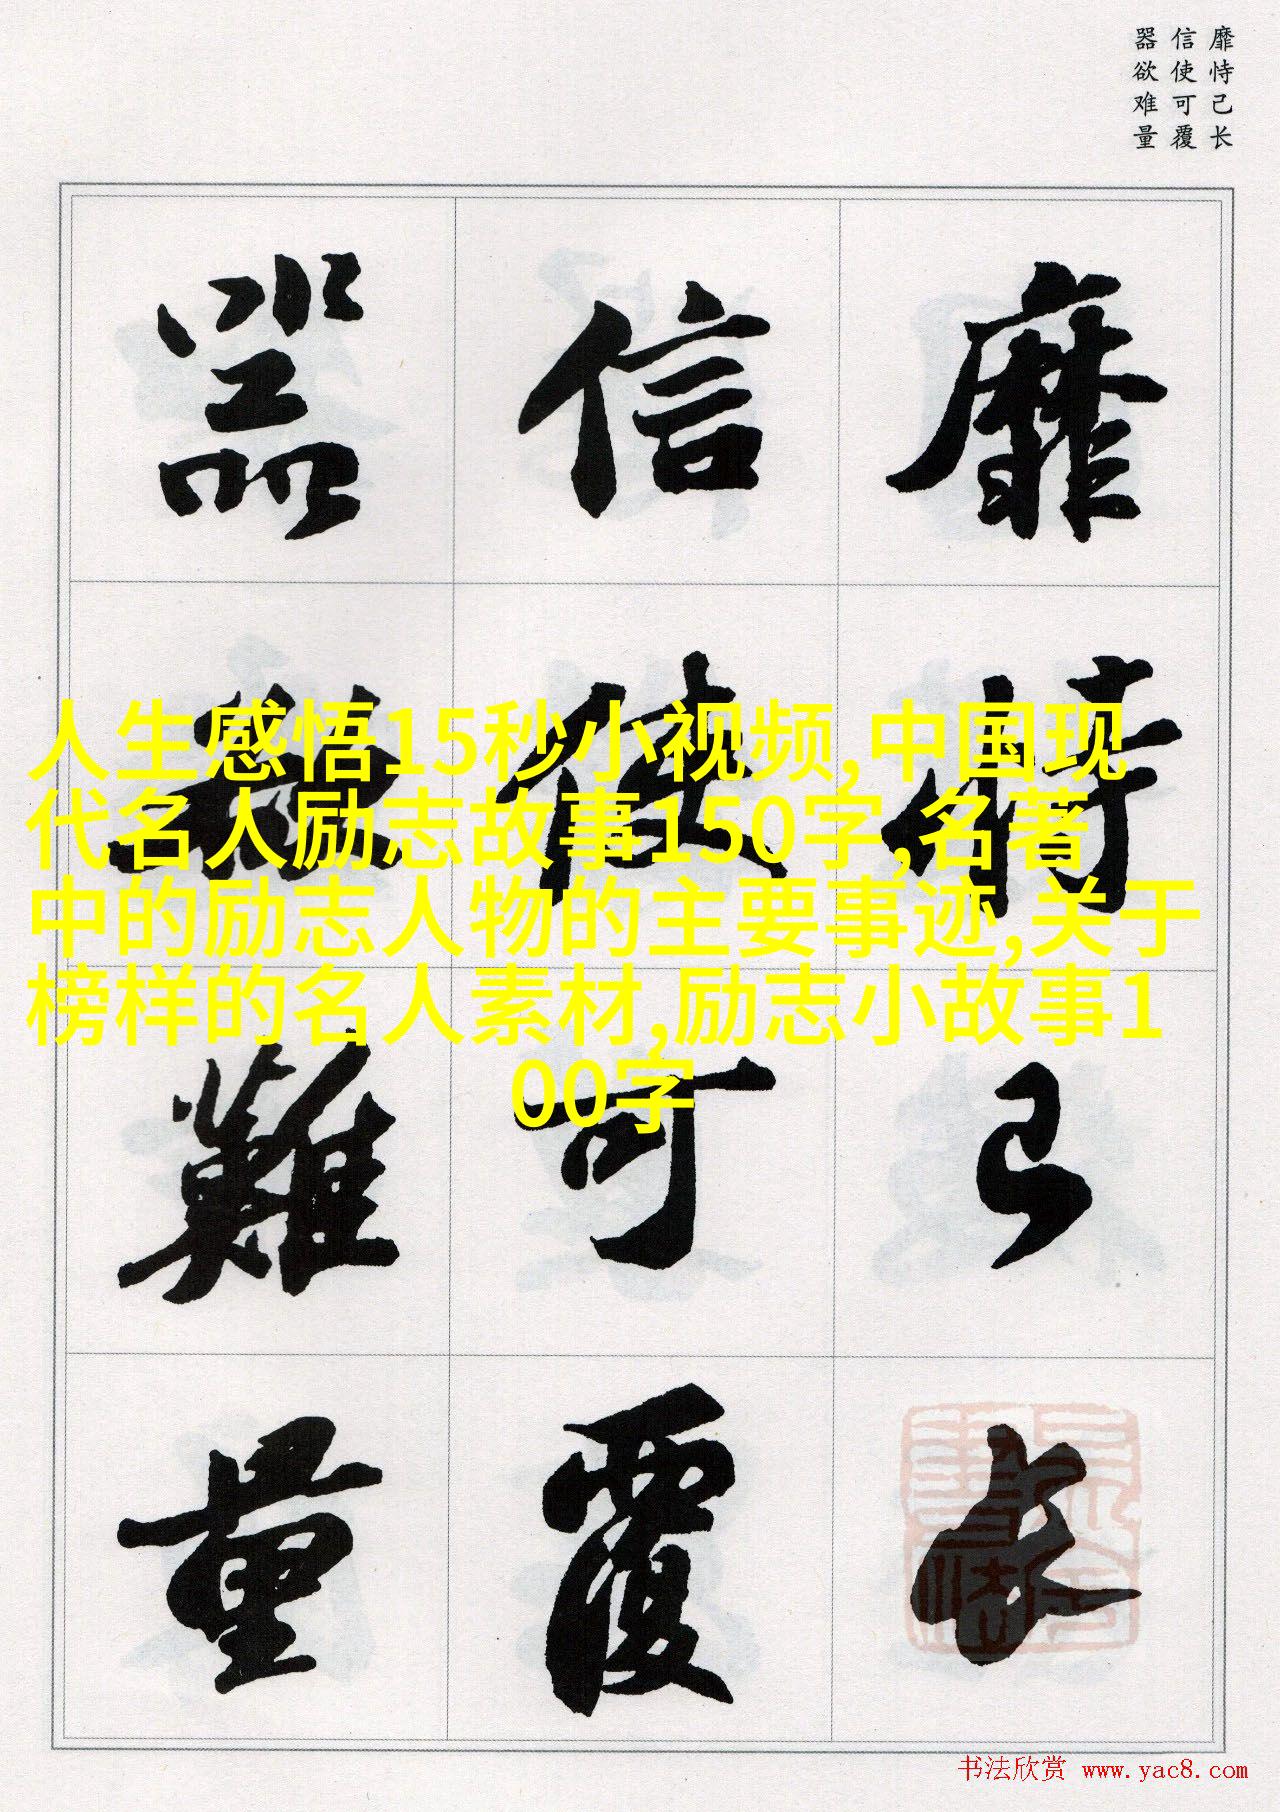 靡恃己长
信使可覆
器欲难量
靡恃己長
信使可覆
器欲難量
人生感悟15秒小视频,中国现
代名人励志故事150字,名著
中的励志人物的主要事迹,关于
榜样的名人素材,励志小故事1
00字
书法欣赏 www.yac8.com